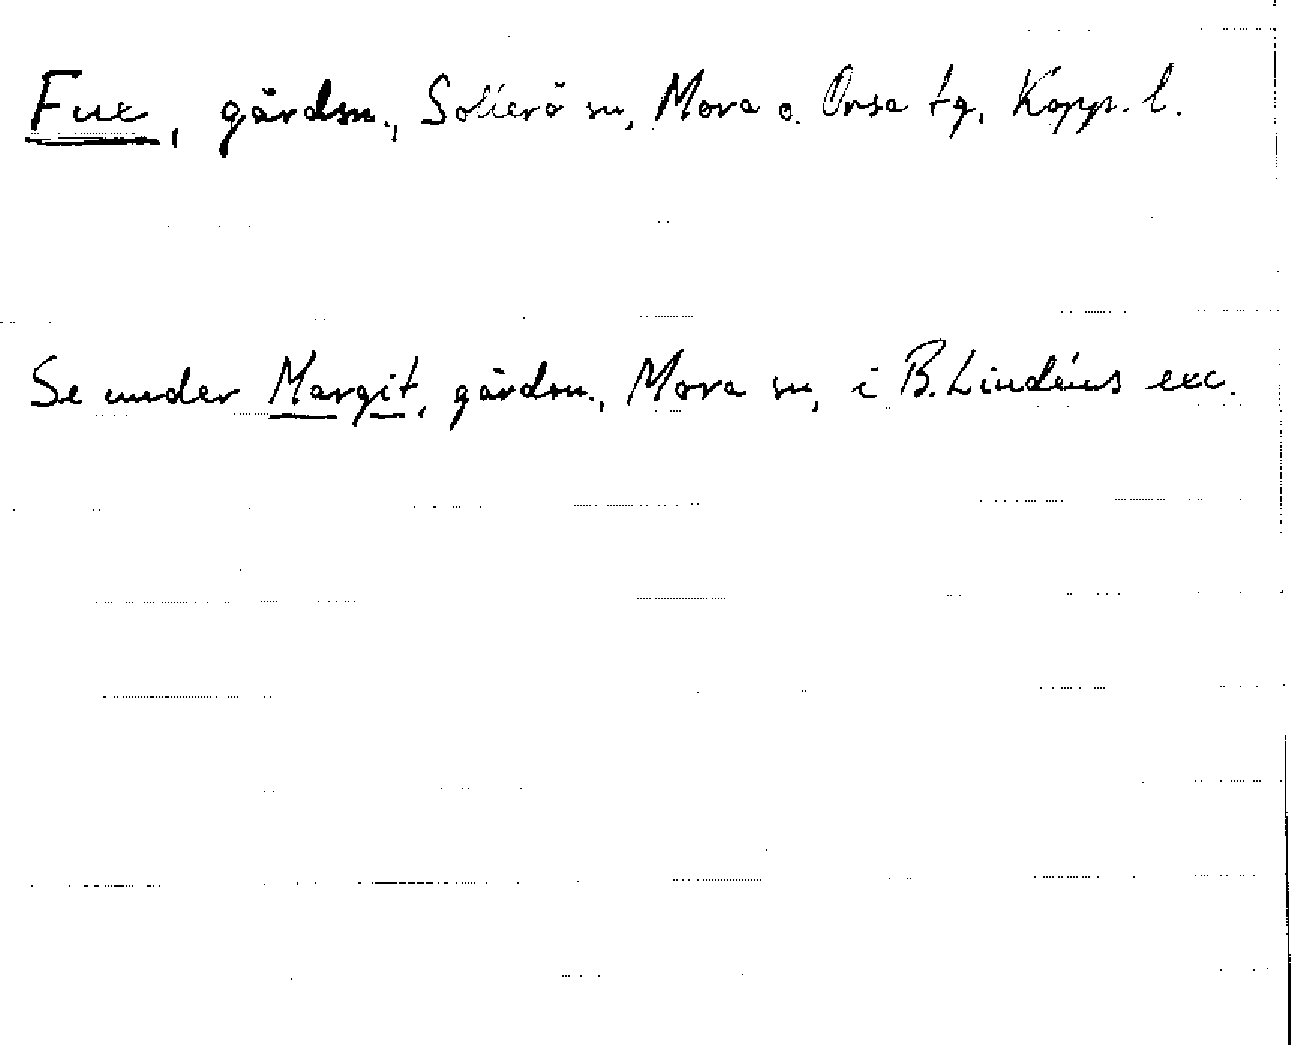 Fux, gårdsn., Sollerö sn, Mora o. Orsa tg, Kopp. l.
Se under Margit, gårdsn., Mora sn, i B. Lindéns exc.